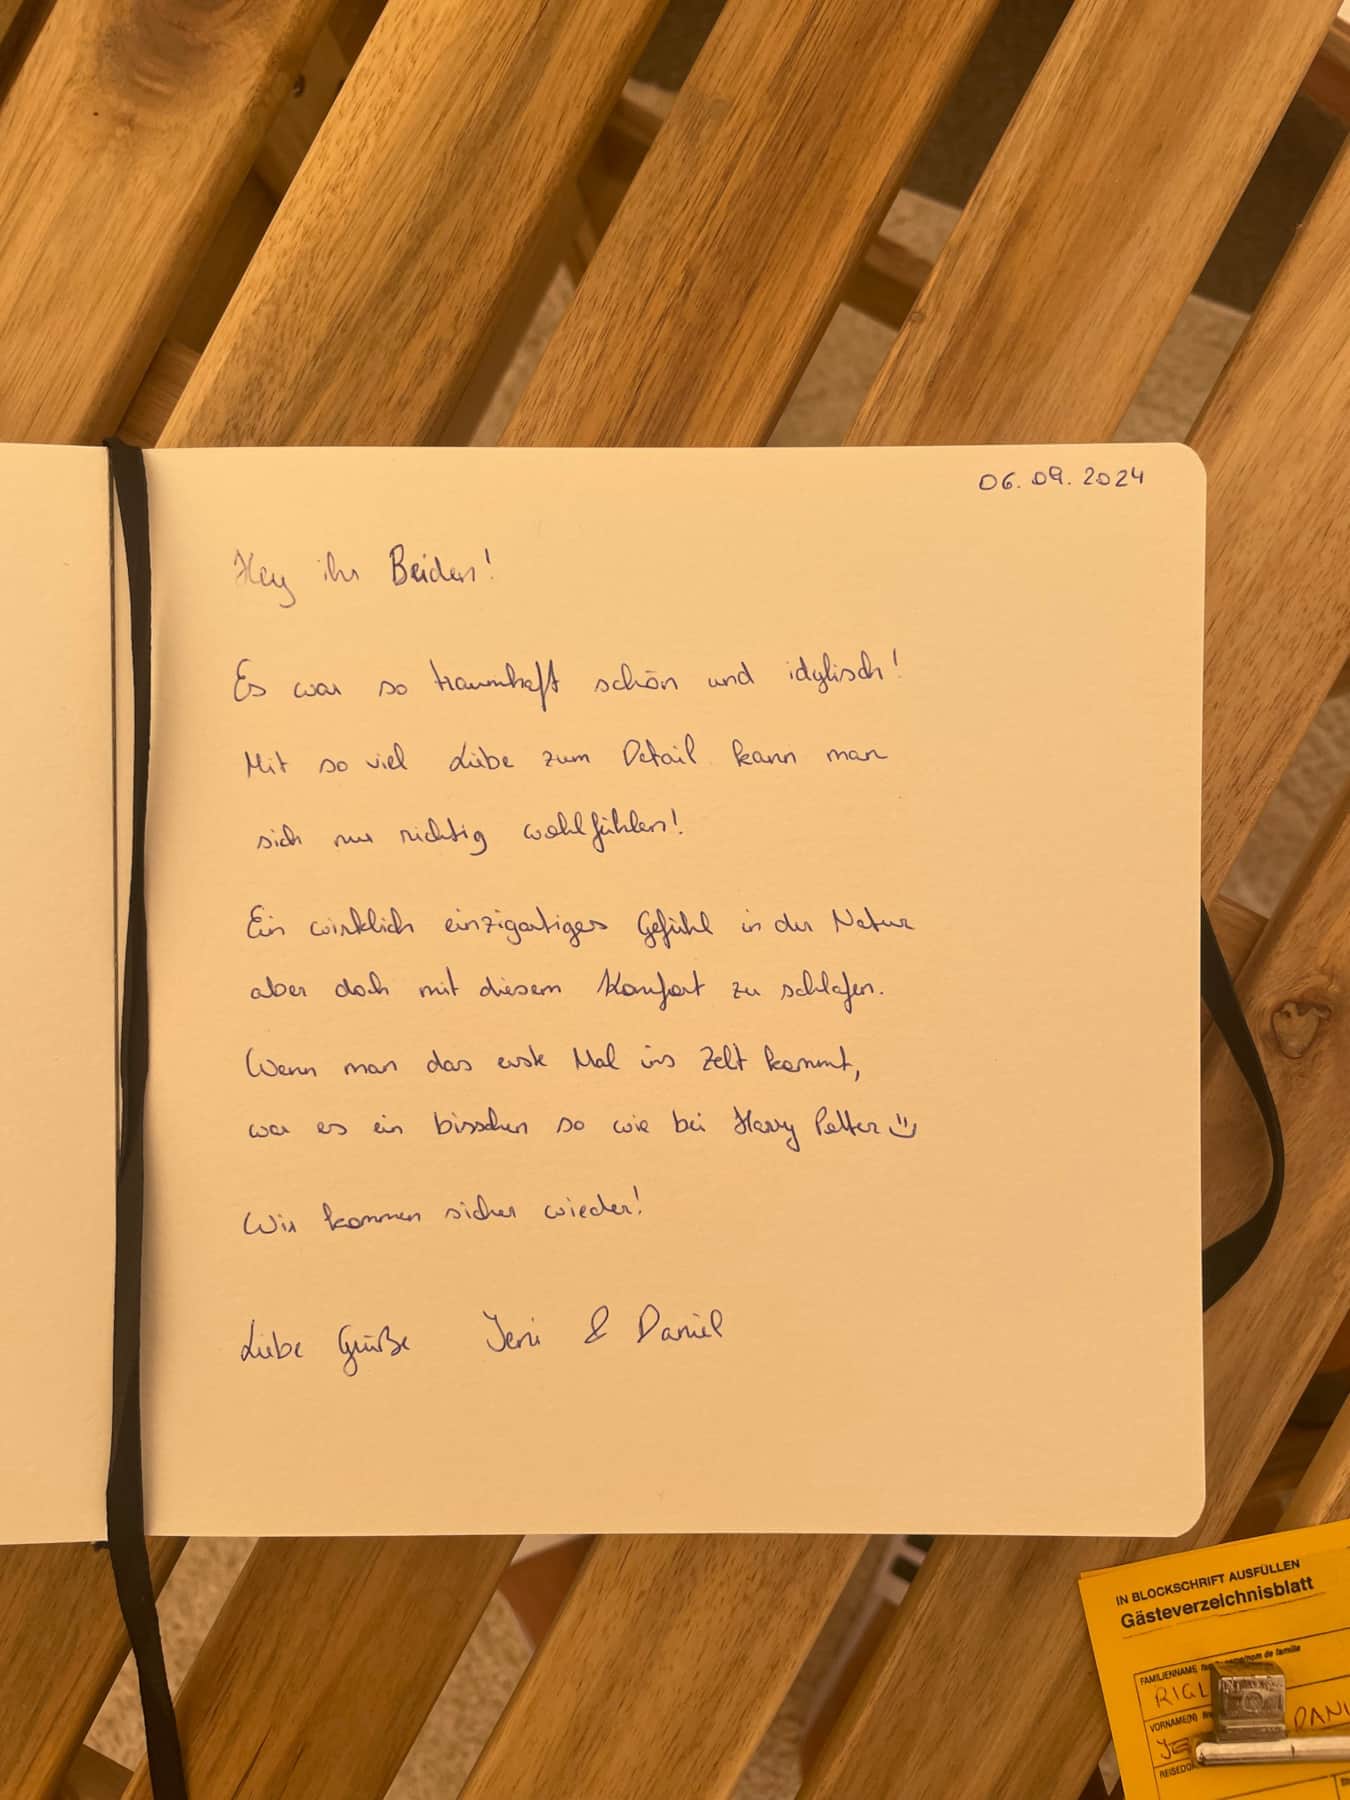 06.09.2024
Hey ihr Beiden!
Es war so traumhaft schön und idylisch!
Mit so viel Liebe zum Detail kann man
sich nur richtig wohlfühlen!
Ein wirklich einzigartiges Gefühl in der Natur
aber doch mit diesem Komfort zu schlafen.
Wenn man das erste Mal ins Zelt kommt,
war es ein bisschen so wie bei Harry Potter
Wir kommen sicher wieder!
Liebe Grüße Jeni & Daniel
IN BLOCKSCHRIFT AUSFÜLLEN
Gästeverzeichnisblatt
FAMILIENNAME name/nom de famille
RIGL
VORNAME(N)
JE DANI
REISEDO